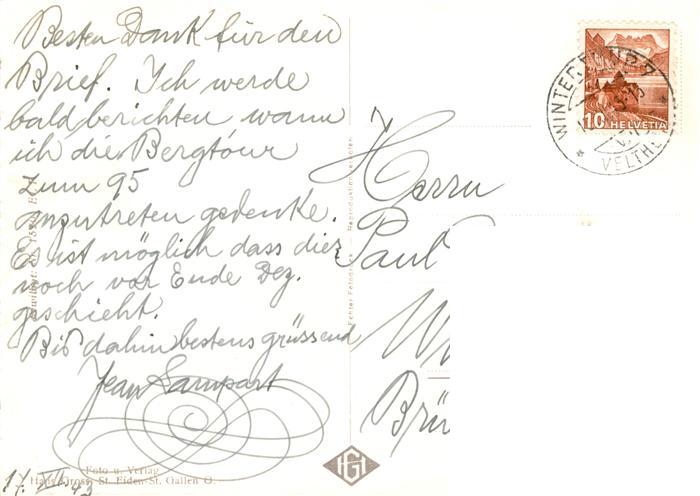 Besten Dank für den
Brief. Ich werde
bald berichten wann
ich die Bergtour
zum 95
anzutreten gedenke.
Es ist möglich dass dies
noch vor Ende Dez.
geschieht.
Bis dahin bestens grüssend
Jean Lampart
17. XII. 43
Foto u. Verlag
Hans Gross, St. Fiden-St. Gallen O.
Echter Fotodruck — Reproduktion verboten
HG
Herrn
Paul
10 HELVETIA
WINTERTHUR 7
VELTHE